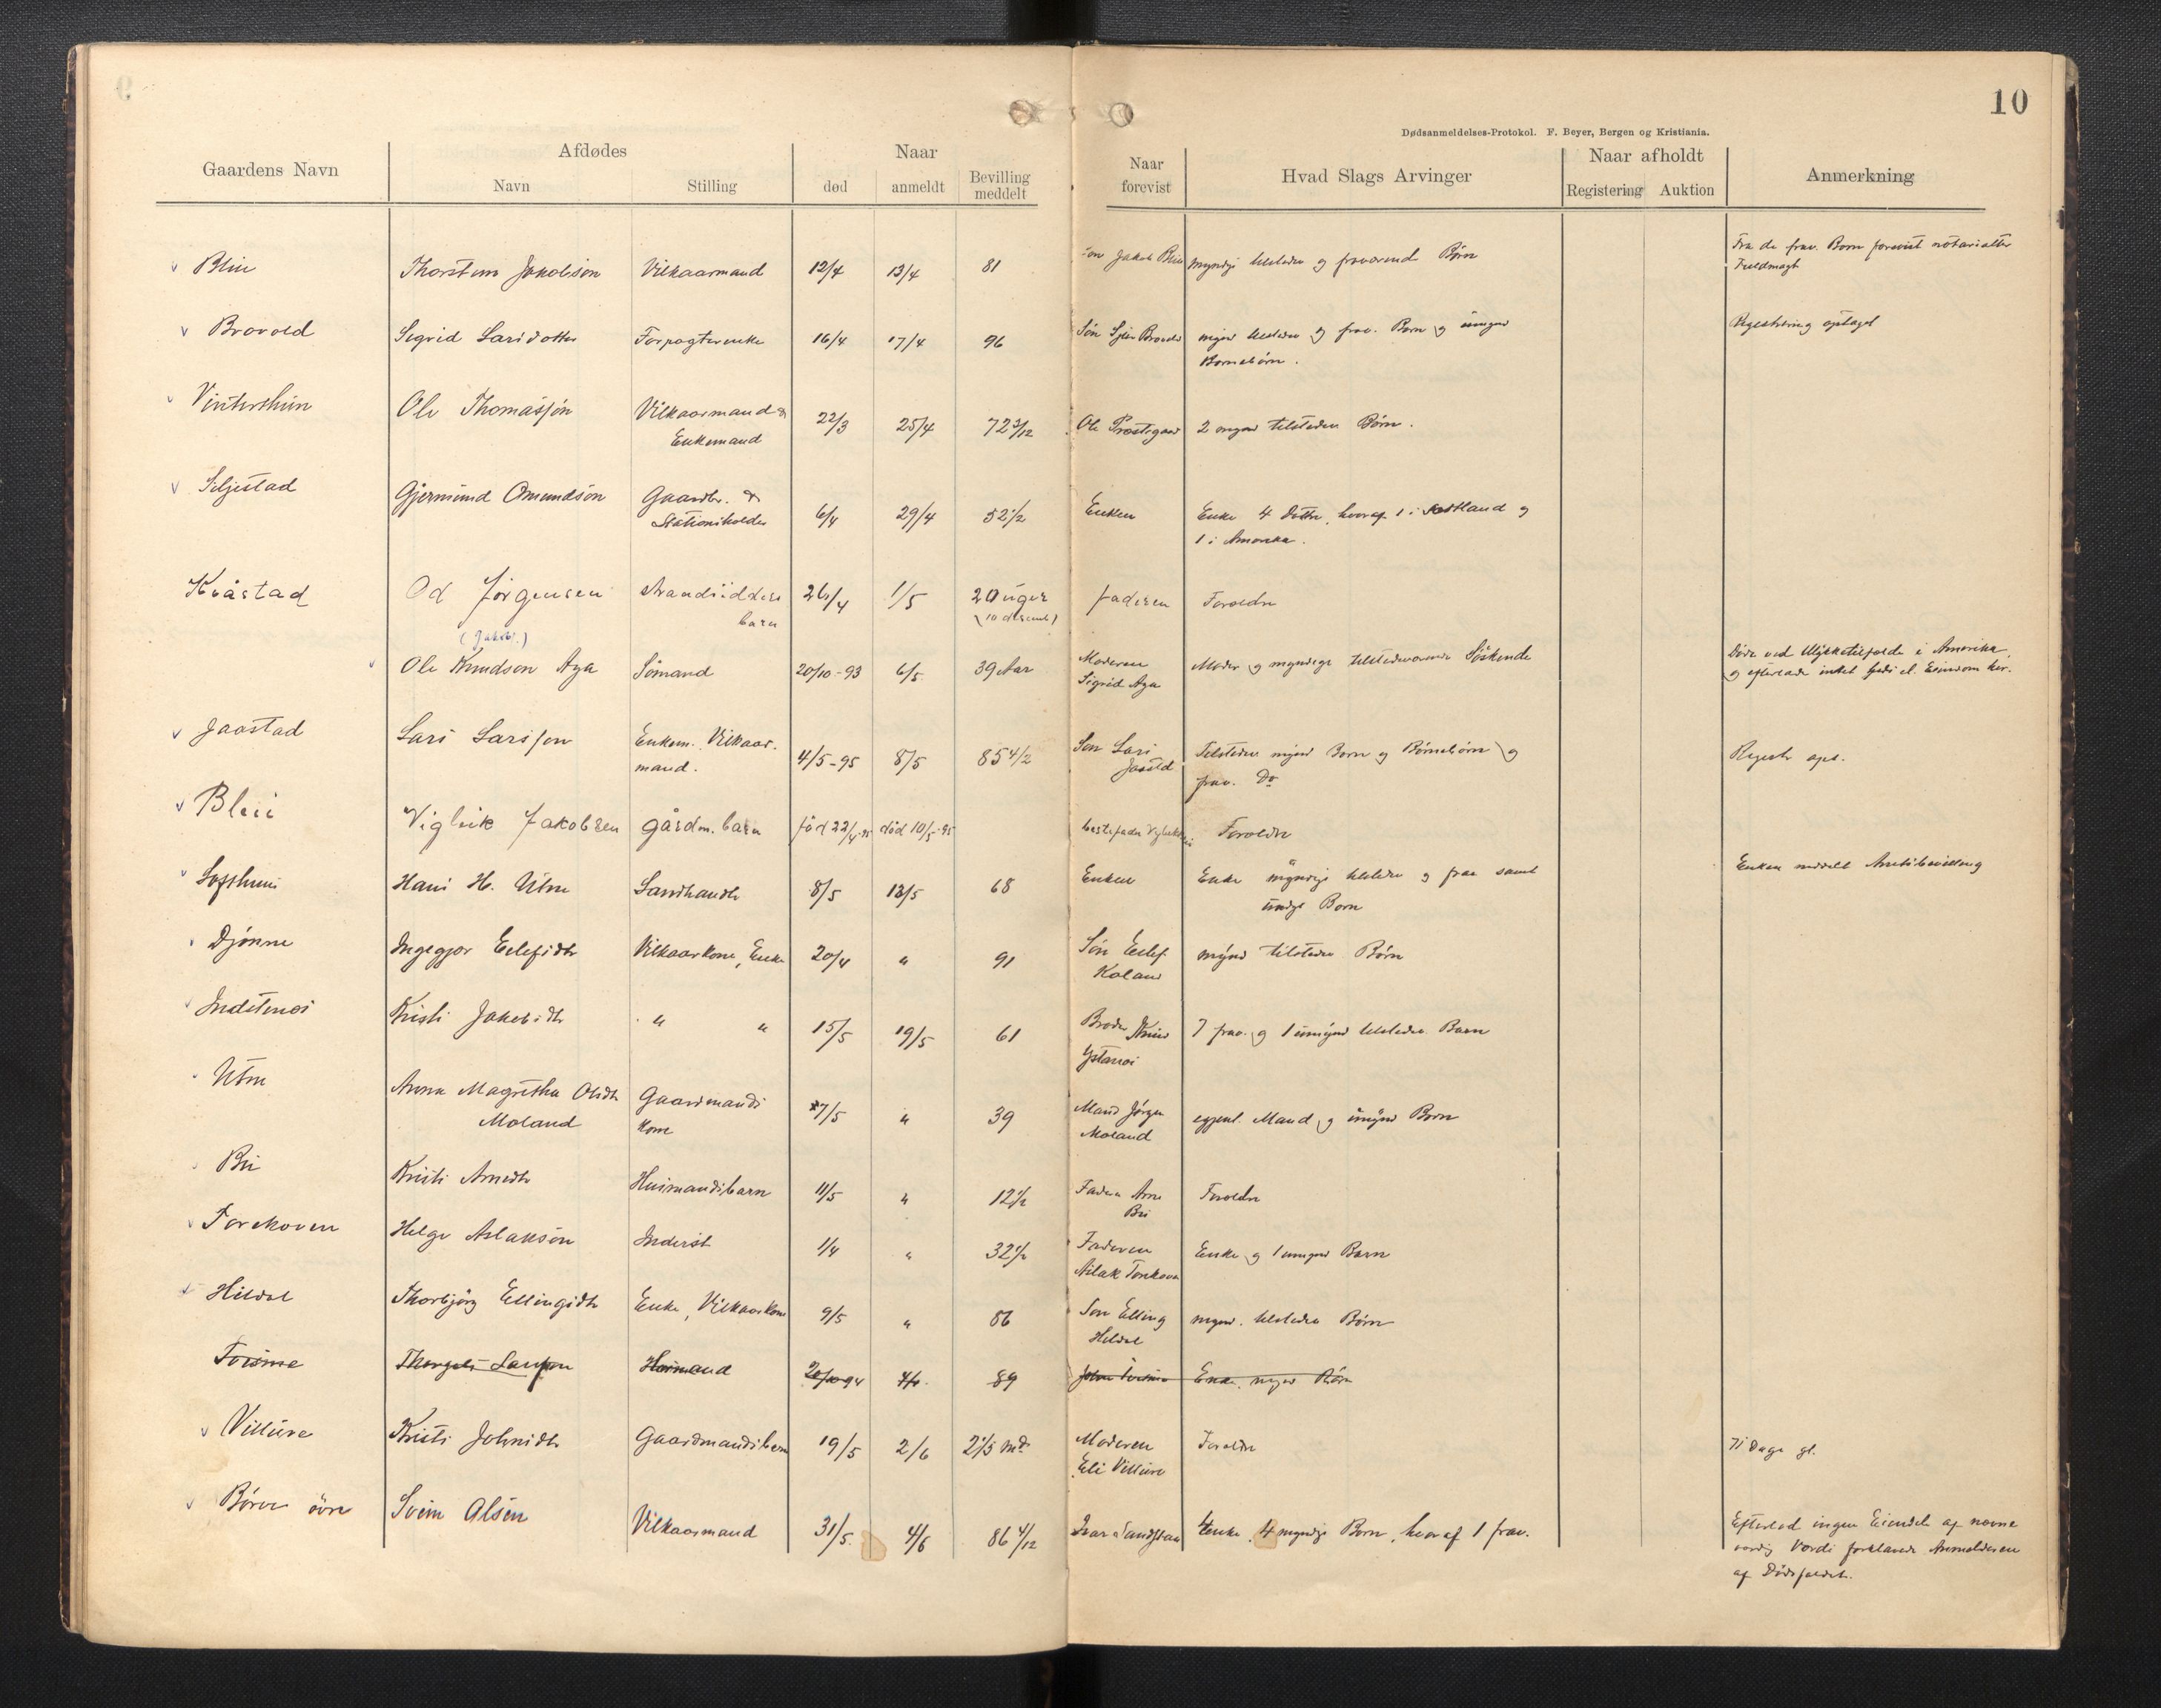 10
Dødsanmeldelses-Protokol. F. Beyer, Bergen og Kristiania.
Gaardens Navn
Afdødes
Navn
Stilling
Naar
død
anmeldt
Bevilling meddelt
Naar forevist
Hvad Slags Arvinger
Naar afholdt
Registering
Auktion
Anmerkning
Bleie Thorstein Jakobson Vilkaarmand 12/4 13/4 81 Jakob Bleie myndige tilstedev og fraværende Børn Fra de frav. Børn forevist notarialter
Fuldmagt
Bravold Sigrid Larsdotter Forpagterenke 16/4 17/4 96 Søn mynd tilstedev og frav. Børn og umynd
Børnebørn. Registrering optaget
Vinterthun Ole Thomasson Vilkaarmand &
Enkemand 22/3 25/4 72 3/12 Ole Præstegaard 2 mynd tilstedev Børn.
Seljestad Gjermund Omundson Gaardbr. &
Stationsholder 6/4 29/4 52 1/2 Enken Enke 4 Døttre, hvoraf 1 i og
1 i Amerika.
Kvåstad Od Jørgensen Strandsidders
barn 26/4 1/5 20 uger
(10 decemb) faderen Forældre
(Jakob.)
Ole Knudson Aga Sømand 20/10-93 6/5 39 Aar Moderen
Sigrid Aga Moder og myndige tilstedeværende Søskende Døde ved Ulykkestilfælde i Amerika
og efterlade intet Gods el. Eiendom her.
Jaastad Lars Larsson Enkem. Vilkaar-
mand. 4/5-95 8/5 85 4/2 Søn Lars
Jaastd Tilstedev mynd Børn og Børnebørn og
frav. Do Registr opt.
Bleie Viglik Jakobsen gårdm. barn fød 22/4-95 død 10/5-95 bestefader Forældre
Lofthus Hans H. Utne Landhandler 8/5 13/5 68 Enken Enke myndige tilstedev og frav samt
umynd Børn Enken meddelt
Djønne Ingegjær Eilefsdtr Vilkaarkone, Enke 20/4 " 91 Søn Eilef
Koland mynd tilstedev Børn
Indstenæs Kristi Jakobsdtr " " 15/5 19/5 61 Broder
Ystanæs 7 frav. og 1 umynd tilstedev. Barn
Utne Anna Magretha Olsdtr
Moland Gaardmands
Kone 7/5 " 39 Mand Jørgen
Moland egtenl. Mand og umynd Børn
Bu Kristi Arnedtr Husmandsbarn 11/5 " 12 1/2 Faderen Arne
Bu Forældre
Torekoven Helge Aslakson Inderst 1/4 " 32 1/2 Faderen
Aslak Torekoven Enke og 1 umynd Barn
Hildal Thorbjørg Ellingsdtr Enke, Vilkaarkone 9/5 " 86 Søn Elling
Hildal mynd. tilstedev Børn
Tveisme Thorgils Larsson Husmand 20/10 94 4/6 89 John Tveisme Enke, mynd Børn
Villure Kristi Johnsdtr Gaardmandsbarn 19/5 2/6 2 1/5 Md. Moderen
Eli Villure Forældre 71 Dage gl.
Børve øvre Svein Olsen Vilkaarmand 31/5 4/6 86 4/12 Enke, 4 myndige Børn, hvoraf 1 frav. Efterlod ingen Eiendele af nævne
værdig Værdi forklarede Anmelderen
af Dødsfaldet.